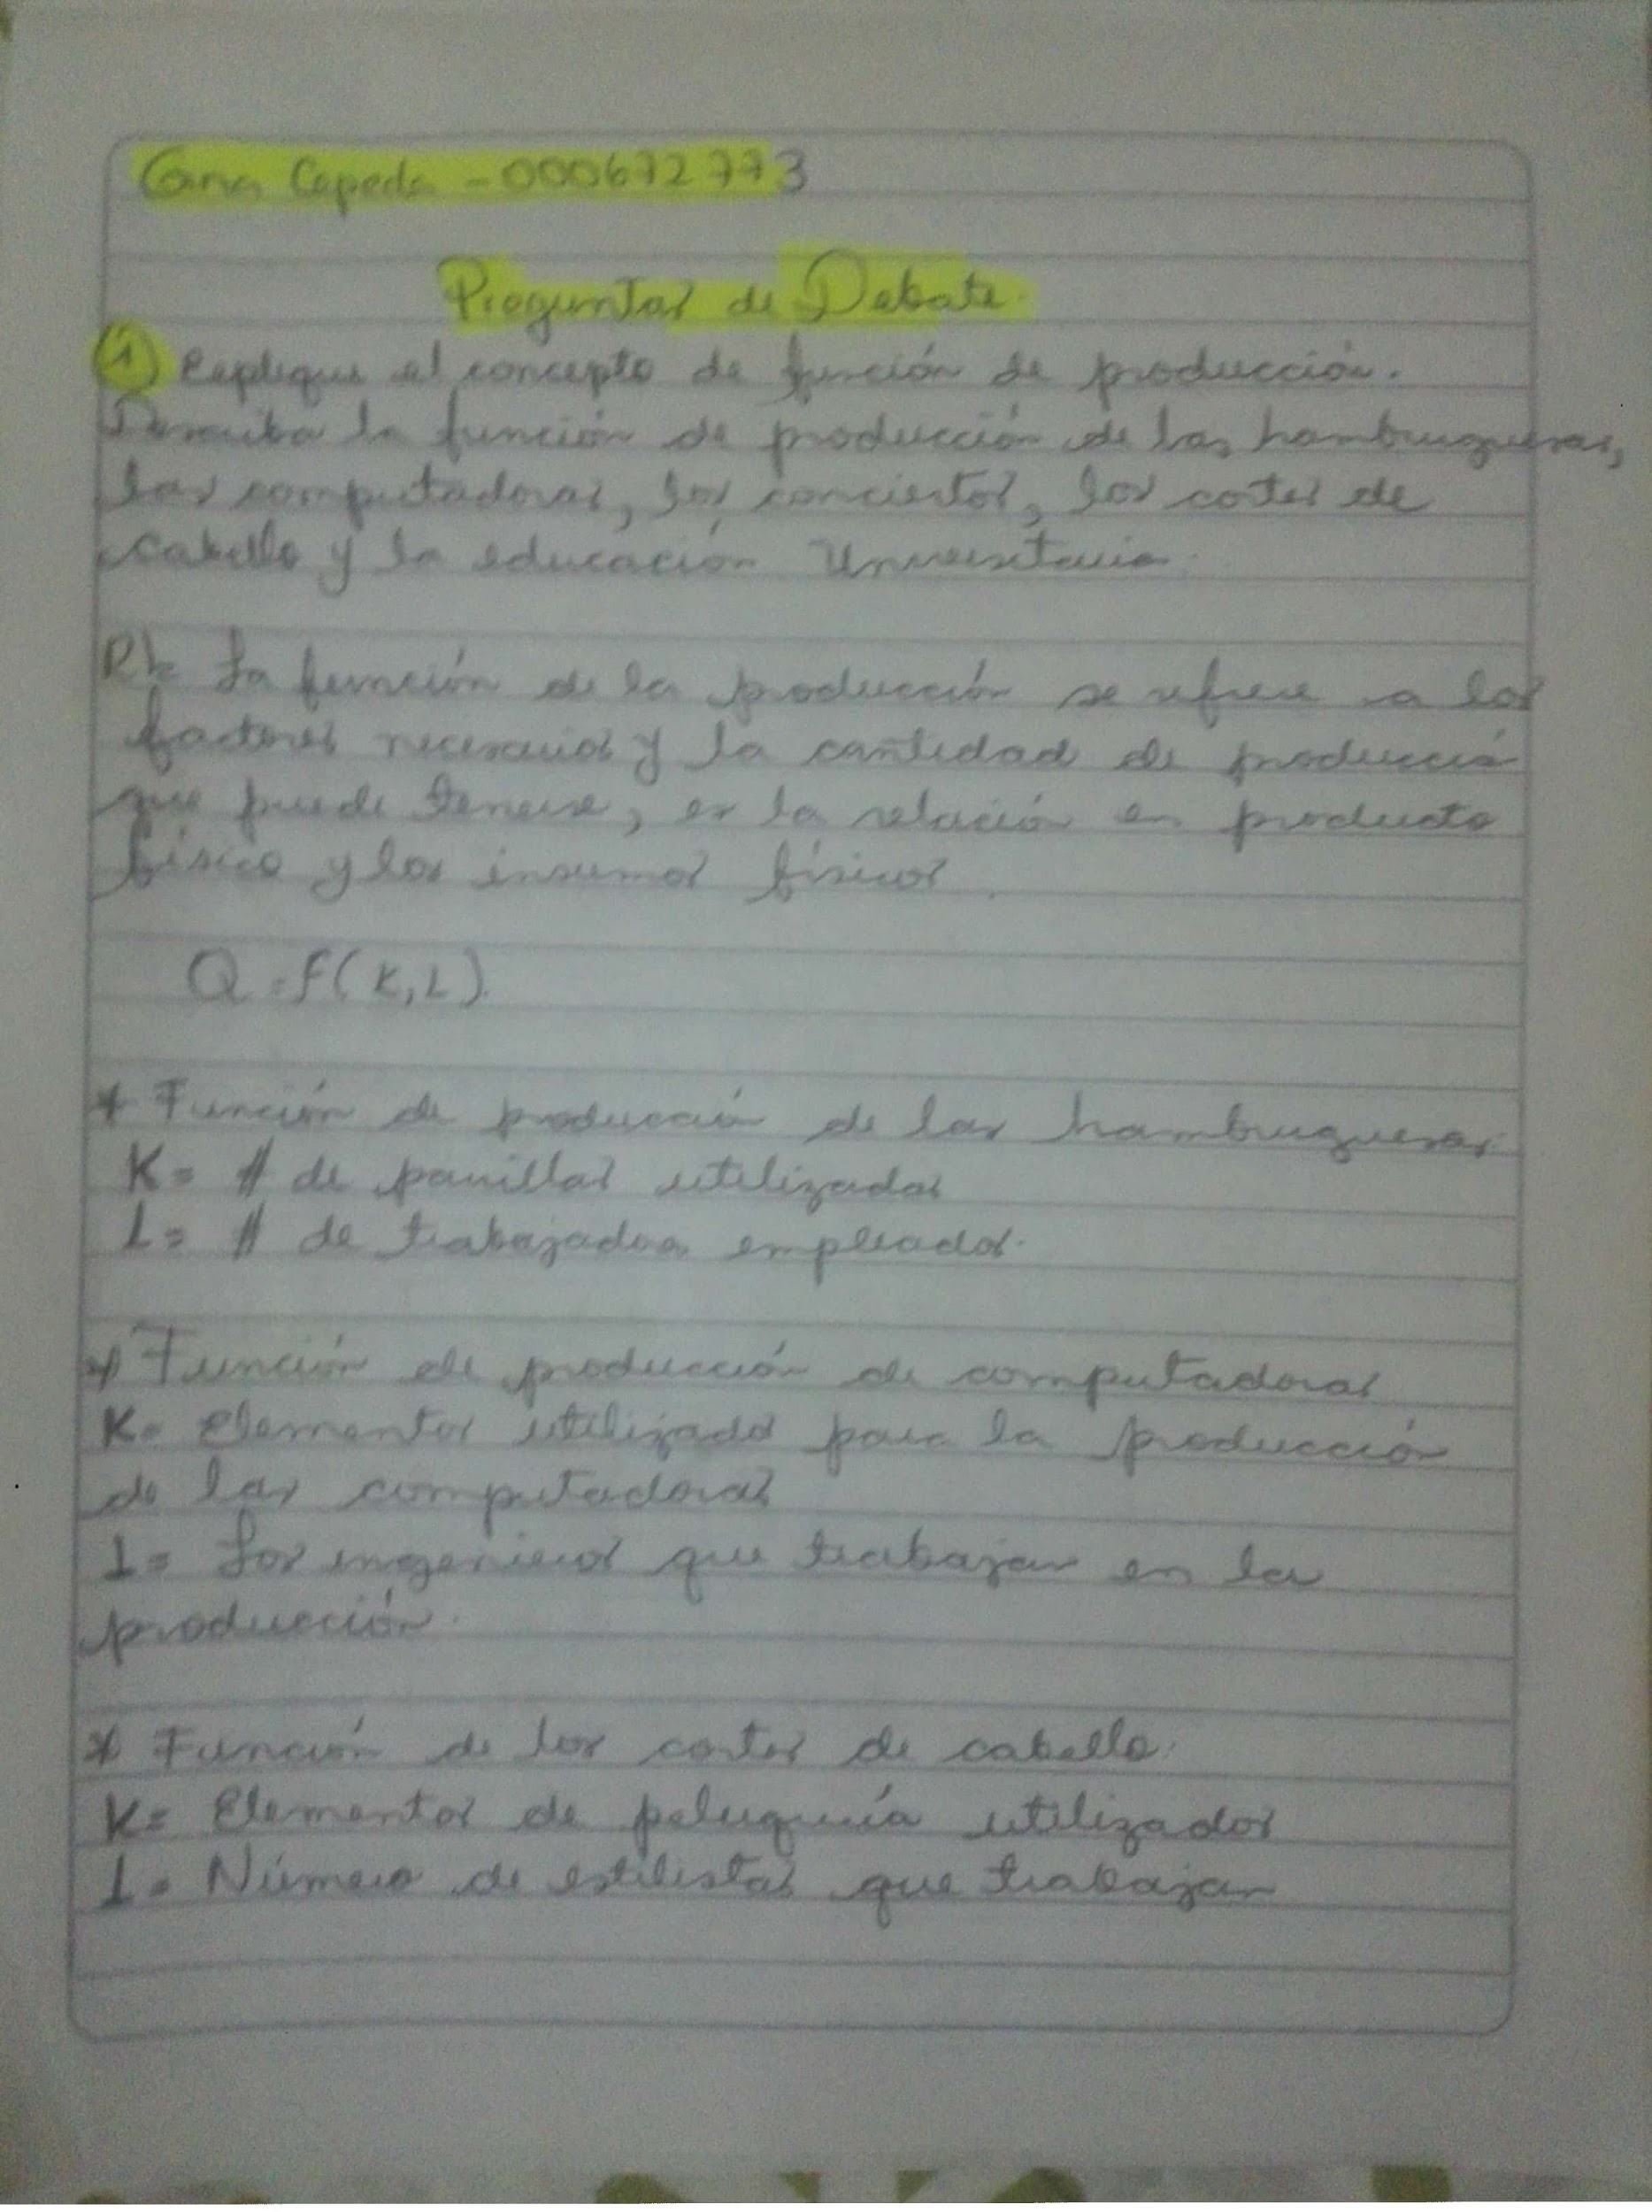 Cepeda - 000672773
Preguntas de Debate.
1) Explique el concepto de función de producción.
Describa la función de producción de las hamburguesas,
las computadoras, los conciertos, los cotes de
cabello y la educación Universitaria.
R/= La función de la producción se refiere a los
factores necesarios y la cantidad de producció
que puede tenerse, es la relación en producto
físico y los insumos físicos
Q=F(K,L).
* Función de producción de las hamburguesas
K= # de parrillas utilizadas
L= # de trabajados empleados.
* Función de producción de computadoras
K= Elementos utilizado para la producción
de las computadoras
L= Los ingenieros que trabajan en la
producción.
* Función de los cortes de cabello.
K= Elementos de peluquería utilizados
L= Número de estilistas que trabajan